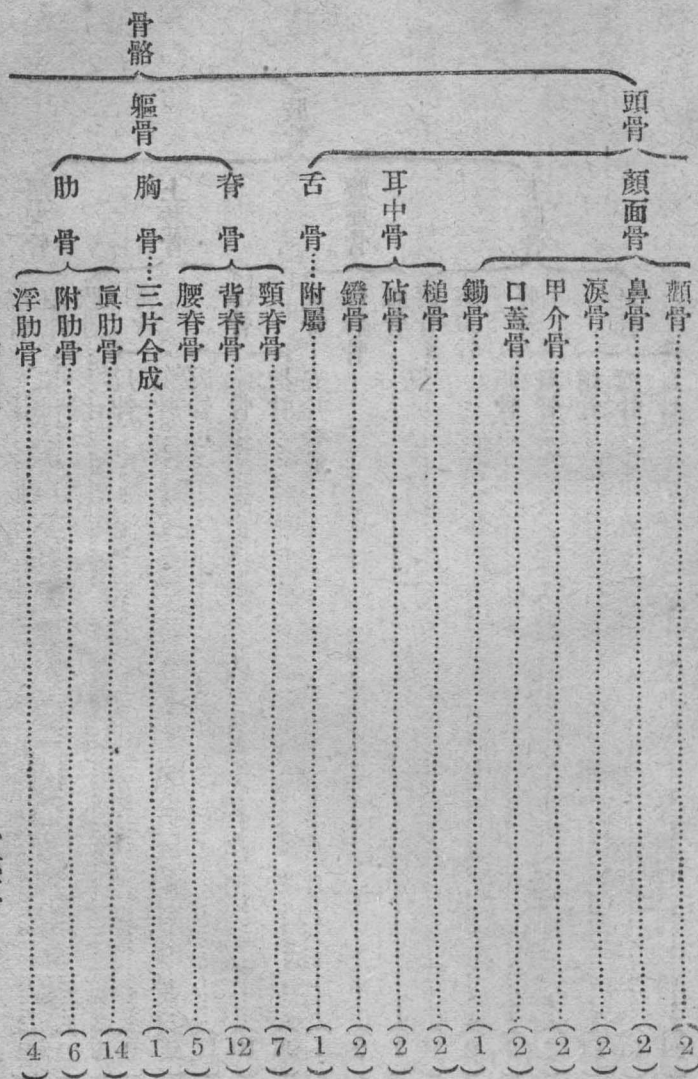 頭骨
顏面骨
顴骨……(2)
鼻骨……(2)
淚骨……(2)
甲介骨……(2)
口蓋骨……(2)
鋤骨……(1)
耳中骨
槌骨……(2)
砧骨……(2)
鐙骨……(2)
舌骨……附屬……(1)
骨骼
軀骨
脊骨
頸脊骨……(7)
背脊骨……(12)
腰脊骨……(5)
胸骨……三片合成……(1)
肋骨
眞肋骨……(14)
附肋骨……(6)
浮肋骨……(4)